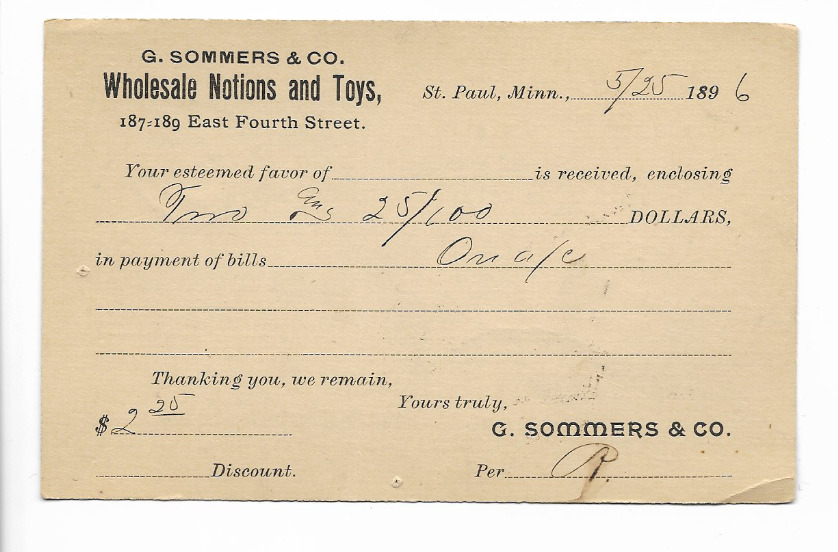 G. SOMMERS & CO.
Wholesale Notions and Toys,
187-189 East Fourth Street.
St. Paul, Minn., 5/25 1896
Your esteemed favor of is received, enclosing
Two and 25/100 DOLLARS,
in payment of bills On a/c
Thanking you, we remain,
Yours truly,
$ 2 25
G. SOMMERS & CO.
Discount. Per R.